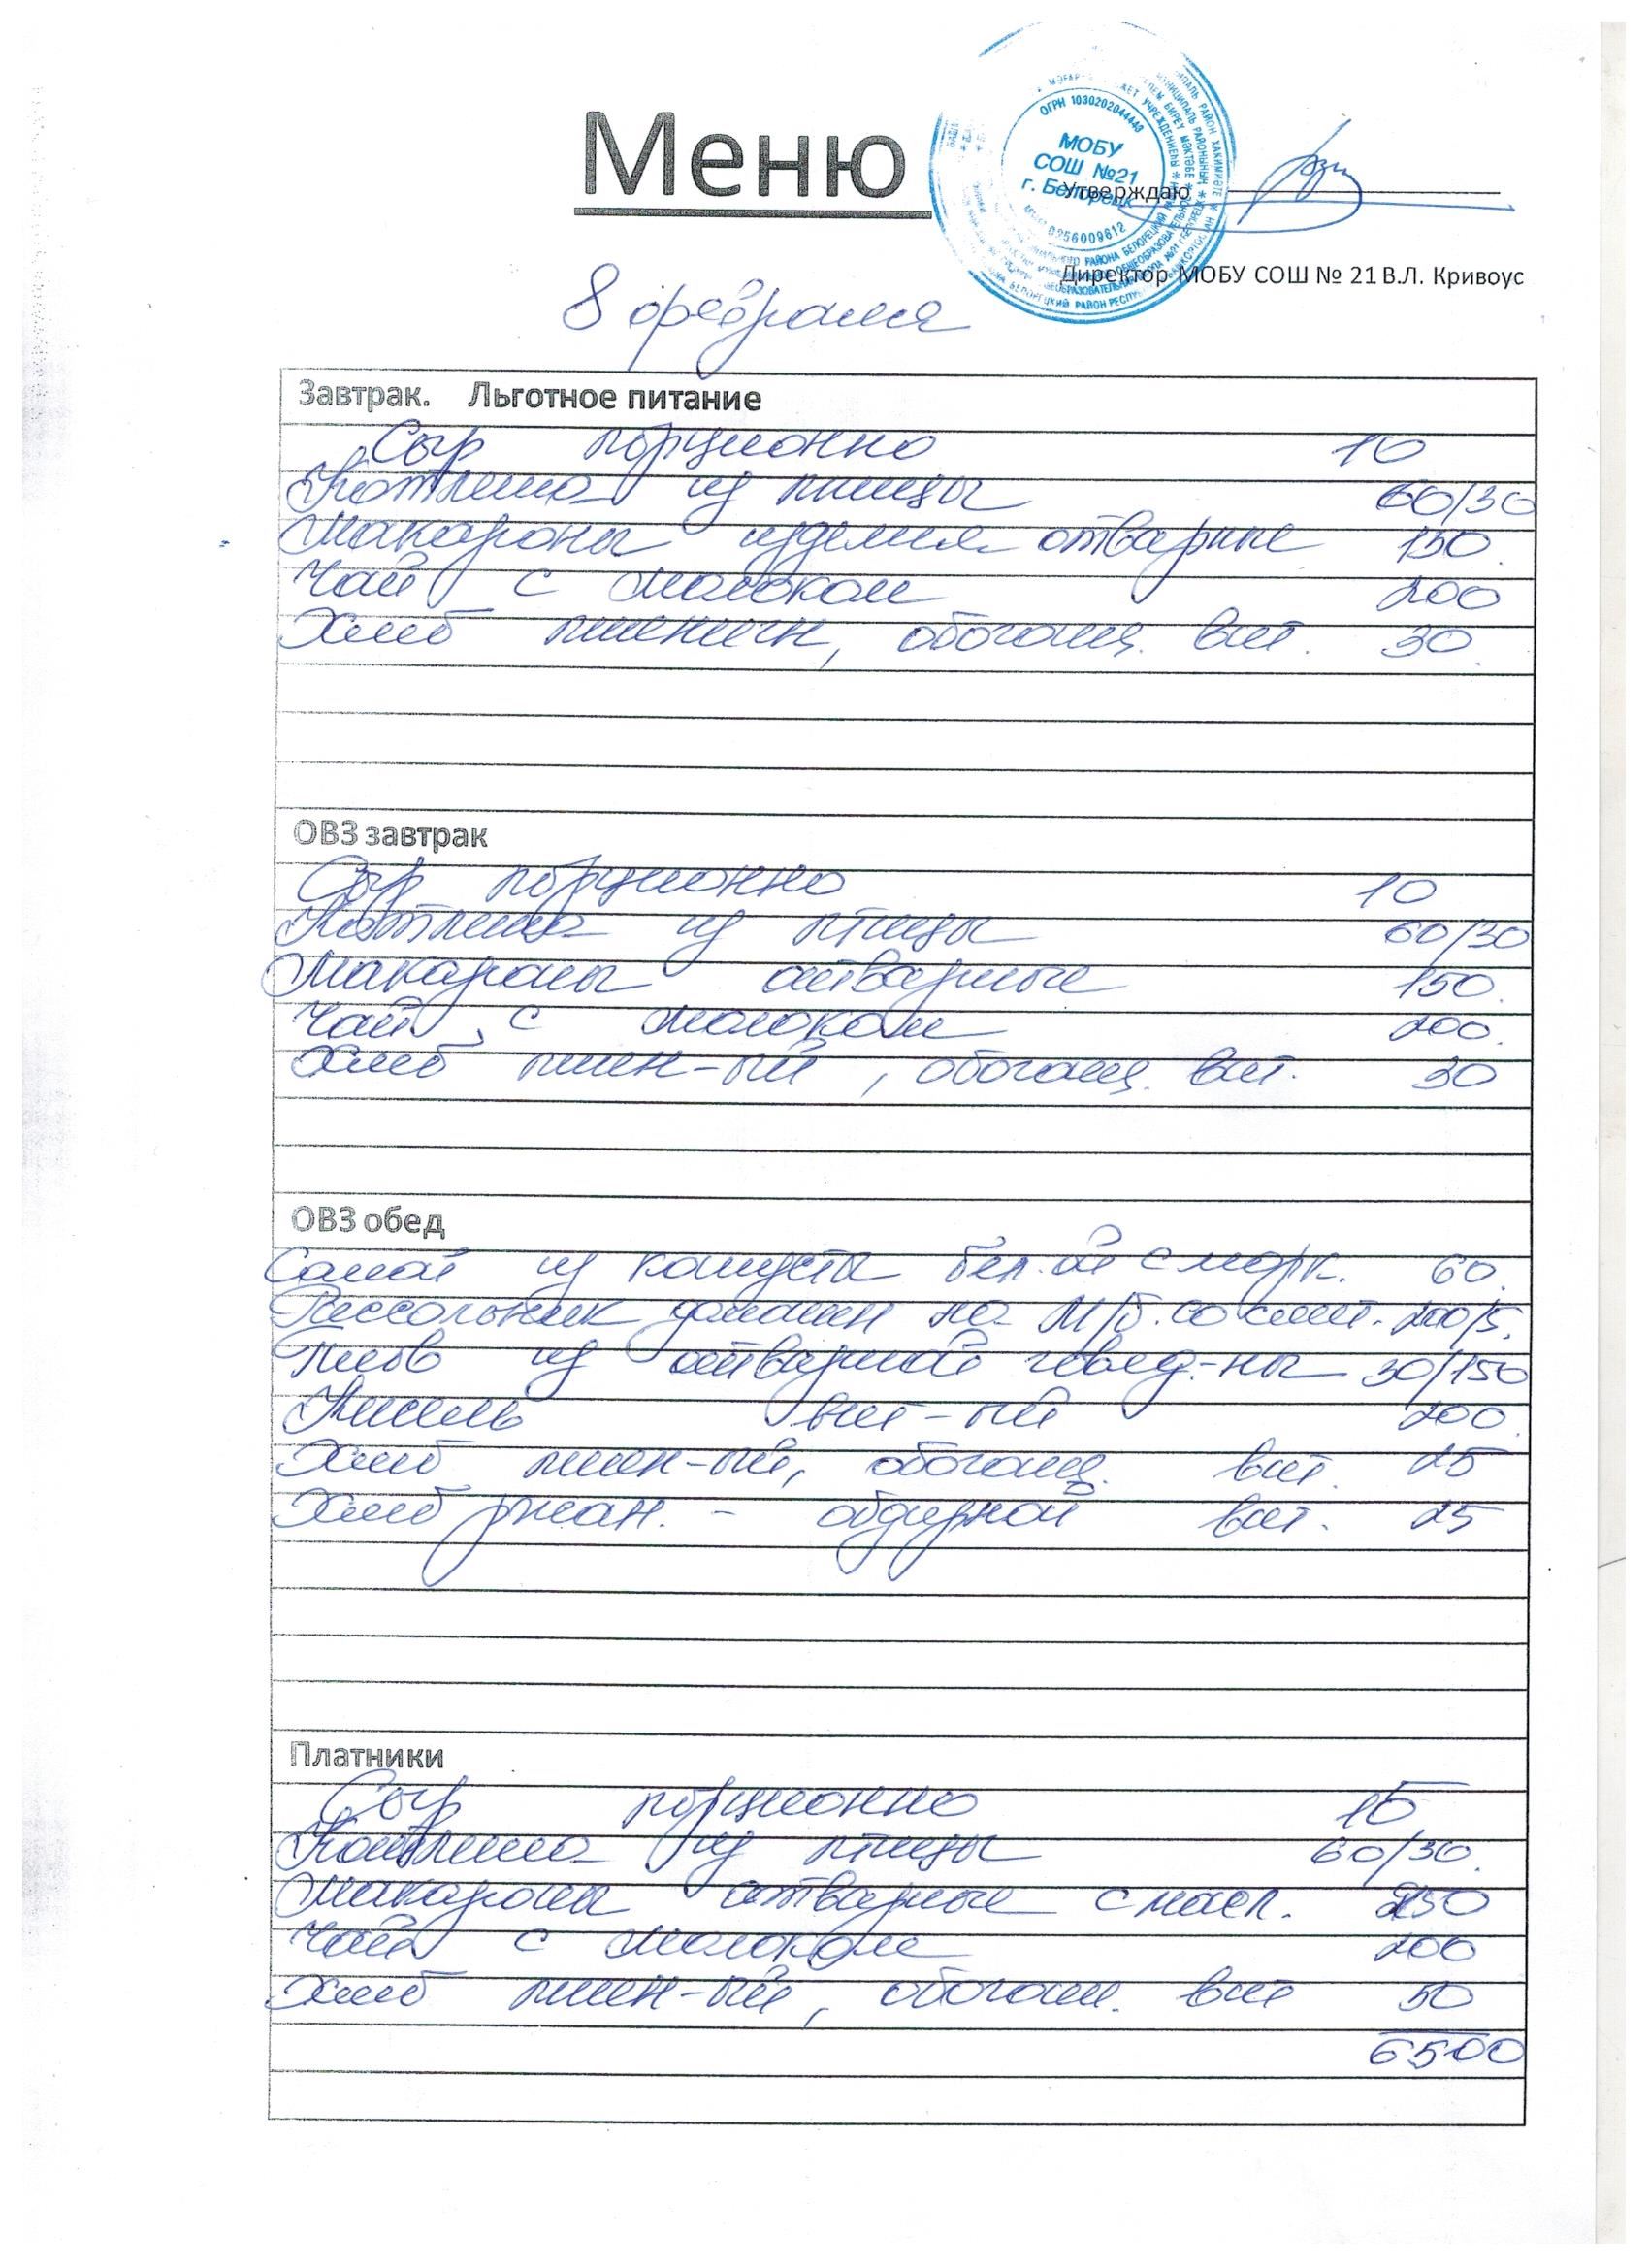 Меню
ОГРН 1030202044440
МОБУ
СОШ №21
г. Белорецк
0256009612
Утверждаю
Директор МОБУ СОШ № 21 В.Л. Кривоус
8 февраля
Завтрак. Льготное питание
Сыр порционно 10
Котлета из птицы 60/30
Макароны изделия отварные 150.
Чай с молоком 200
Хлеб пшеничн, обогащ. вит. 30.
ОВЗ завтрак
Сыр порционно 10
Котлета из птицы 60/30
Макароны отварные 150.
Чай с молоком 200.
Хлеб пшен-ый, обогащ. вит. 30
ОВЗ обед
Салат из капусты бел.ой с морк. 60.
Рассольник домашн на М/б. со смет. 200/5.
Плов из отварной говяд-ны 30/150
Кисель вит-ый 200.
Хлеб пшен-ый, обогащ. вит. 25
Хлеб ржан. - обдирной вит. 25
Платники
Сыр порционно 15
Котлета из птицы 60/30.
Макароны отварные с масл. 150
Чай с молоком 200
Хлеб пшен-ый, обогащ. вит 50
6500